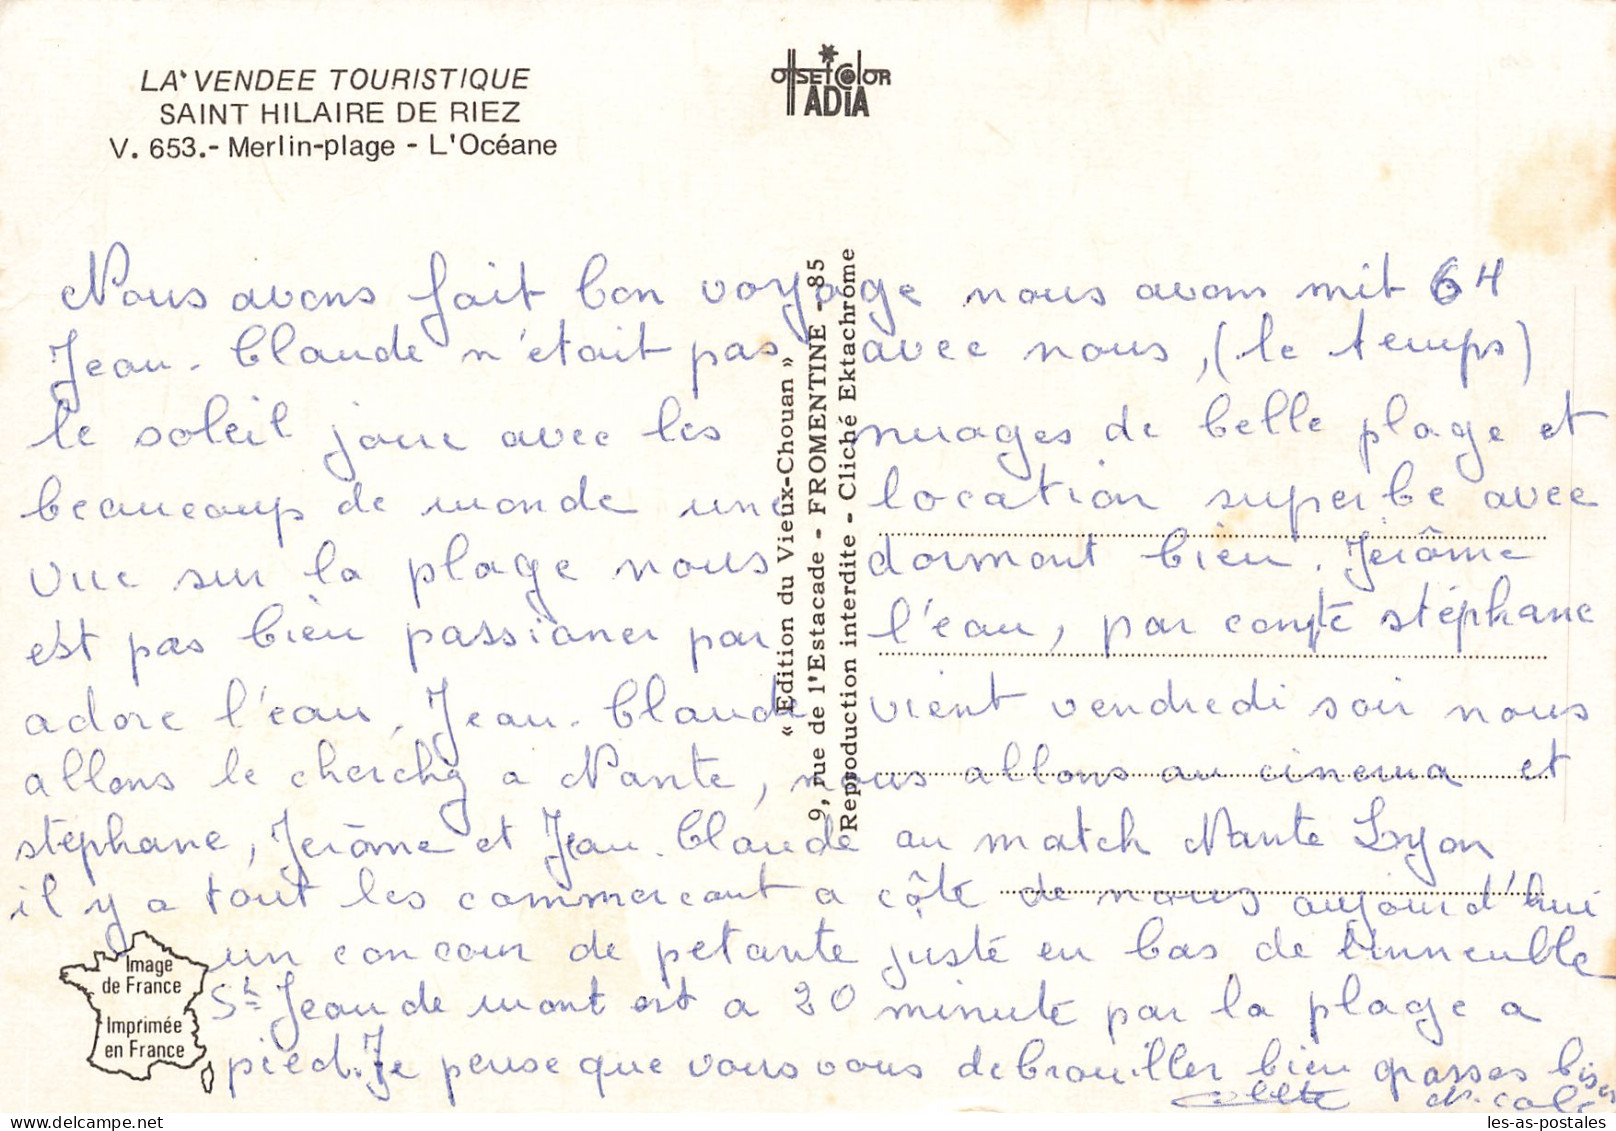 LA VENDEE TOURISTIQUE
SAINT HILAIRE DE RIEZ
V. 653.- Merlin-plage - L'Océane
OffSET COlOR
ADIA
Nous avons fait bon voyage nous avons mit 6 H
Jean-Claude n'était pas avec nous, (le temps)
le soleil joue avec les nuages de belle plage et
beaucoup de monde une location superbe avec
vue sur la plage nous dormont bien. Jérôme
est pas bien passioner par l'eau, par conte stéphane
adore l'eau, Jean-Claude vient vendredi soir nous
allons le cherché a Nante, nous allons au cinema et
stéphane, Jerôme et Jean-Claude au match Nante Lyon
il y a tout les commercant a côte de nous aujourd'hui
un concour de petante juste en bas de l'inneuble
St Jean de mont est a 20 minute par la plage a
pied. Je pense que vous vous debrouiller bien grosses bises
Colette Nicole
« Edition du Vieux-Chouan »
9, rue de l'Estacade - FROMENTINE - 85
Reproduction interdite - Cliché Ektachrome
Image
de France
Imprimée
en France
les-as-postales